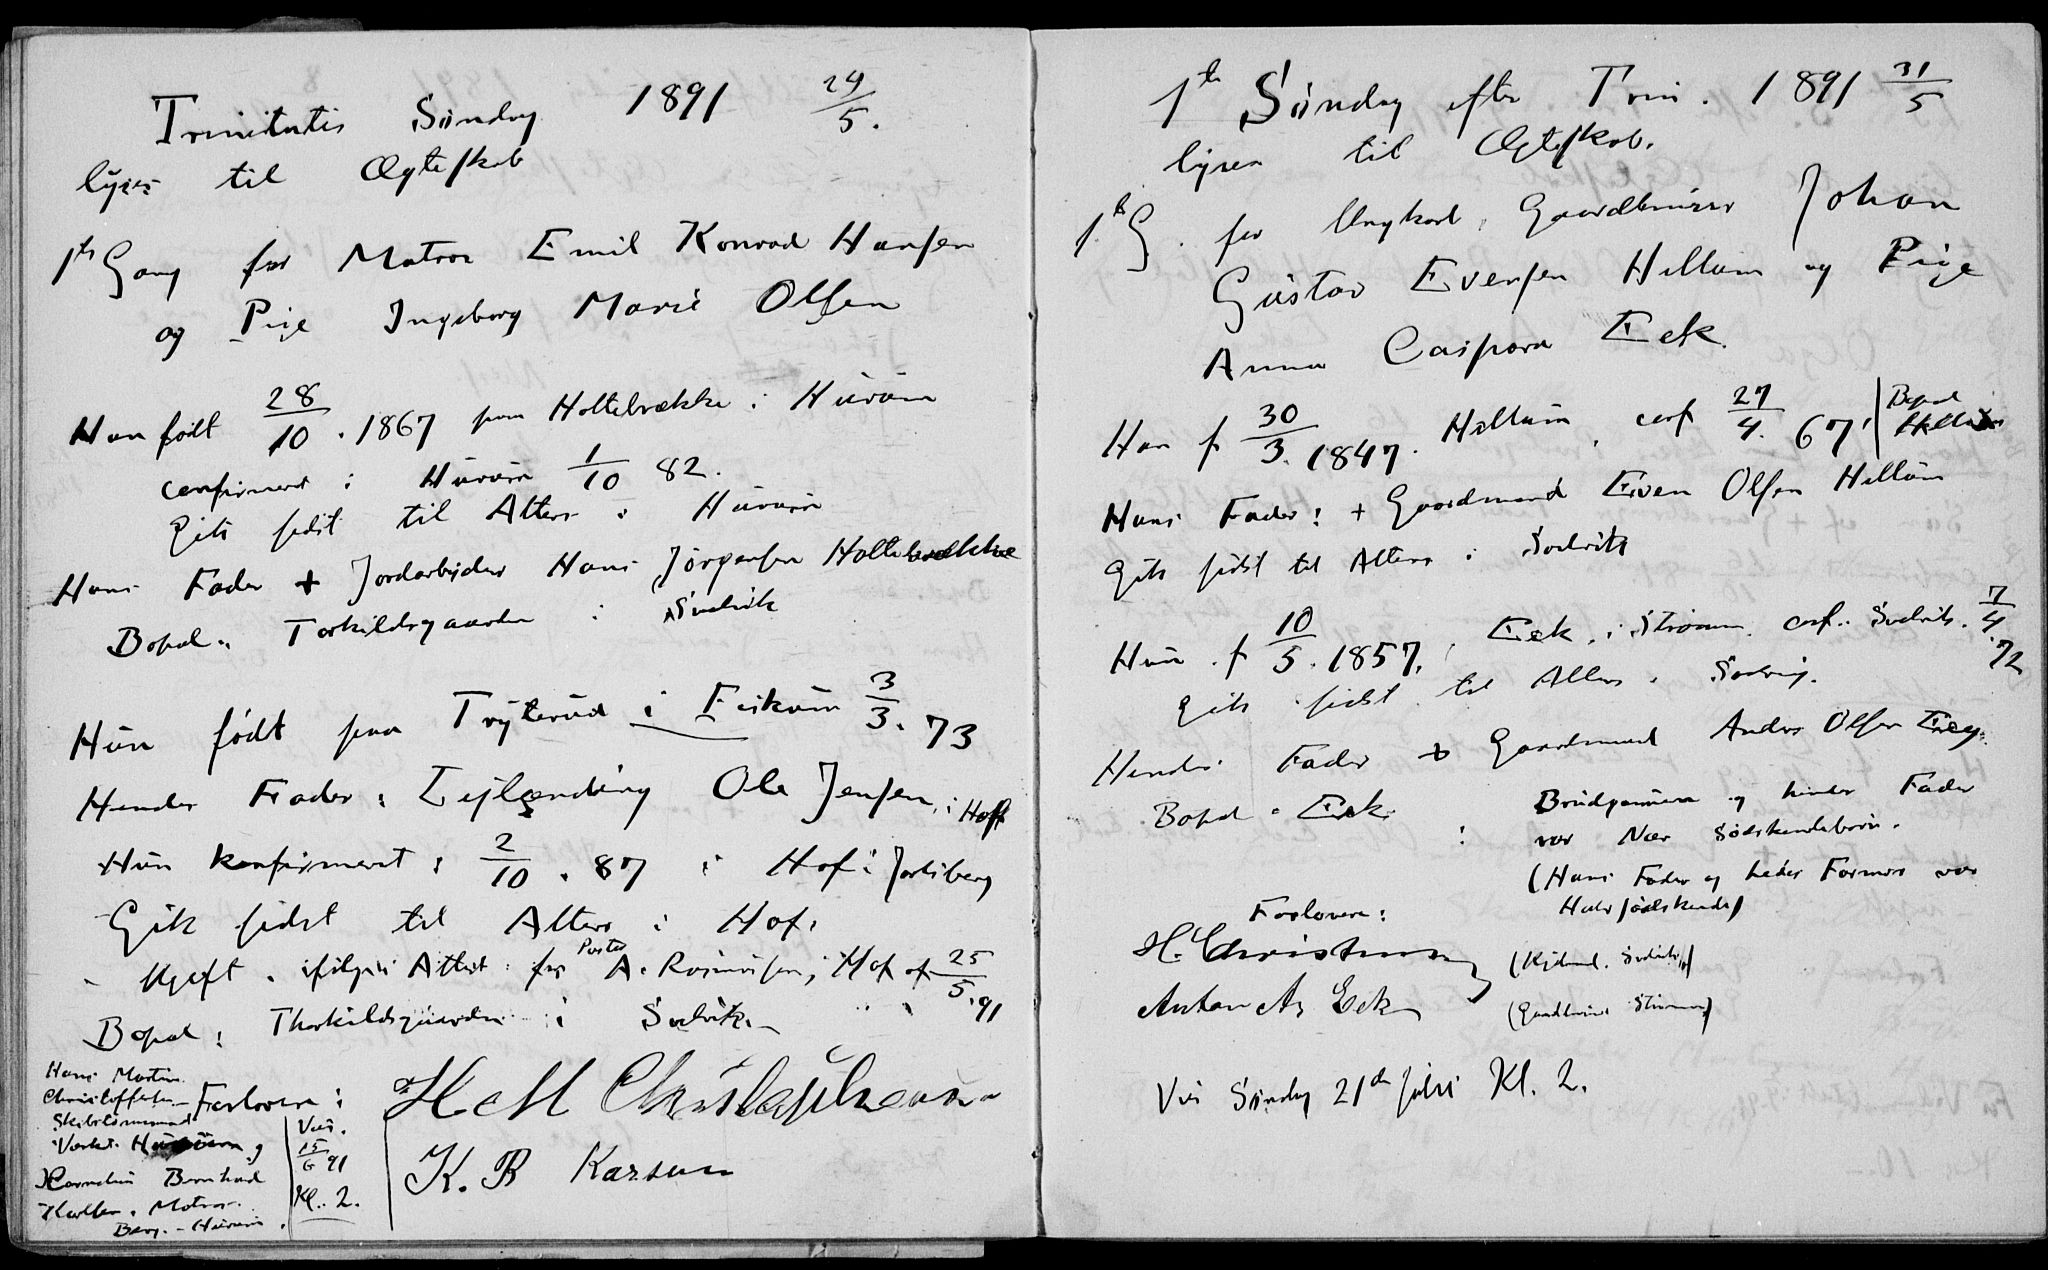 Trinitatis Søndag 1891 24/5.
lyses til Ægteskab
1ste Gang for Matros Emil Konrad Hansen
og Pige Ingeborg Marie Olsen
Han født 28/10. 1867 paa Holtebrække i Hurum
confirmeret i Hurum 1/10 82.
Gik sidst til Alters i Hurum
Hans Fader + Jordarbeider Hans Jörgensen Holtebrække
Bopæl: Torkildsgaarden i Svelvik
Hun født paa Tryterud i Eikum 3/3. 73
Hendes Fader: Leilænding Ole Jensen, i Hoff
Hun konfirmeret: 2/10. 87 i Hof i Jarlsberg
Gik sidst til Alters i Hof.
ifølge Attest fra Pastor A. Rasmusen, Hof af 25/5. 91
Bopæl: Thorkildsgaarden i Svelvik.
Hans Martin
Christoffersen
Forlovere:
H M Christophersen
Værkt. Hurum og
Cornelius Bernhard
Karlsen. Matros.
Berg. - Hurum.
Vies.
15/6 91
Kl. 2.
K. B Karsen
1ste Søndag efter Trin. 1891 31/5
lyses til Ægteskab.
1ste G. for Ungkarl, Gaardbruger Johan
Gustav Evensen Hellum og Pige
Anna Caspara Eek.
Han f 30/3. 1847. Hellum, conf 27/4. 67.
Bopæl
Hellum
Hans Fader: + Gaardmand Even Olsen Hellum
Gik sidst til Alters i Svelvik
Hun f 10/5. 1857. Eek i Strømm. conf. Svelvik. 7/4. 72
Gik sidst til Alters i Svelvig.
Hendes Fader + Gaardmand Anders Olsen Eeg.
Bopæl: Eek.
Brudgommen og hendes Fader
var Nær Södskendebørn.
(Hans Fader og hendes Farmor var
Halvsödskende)
Forlovere:
H. Christensen
(Kjøbmd. Svelvik)
Anton As Eek
(Gaardbruger Strømm)
Vies Søndag 21de Juni Kl. 2.